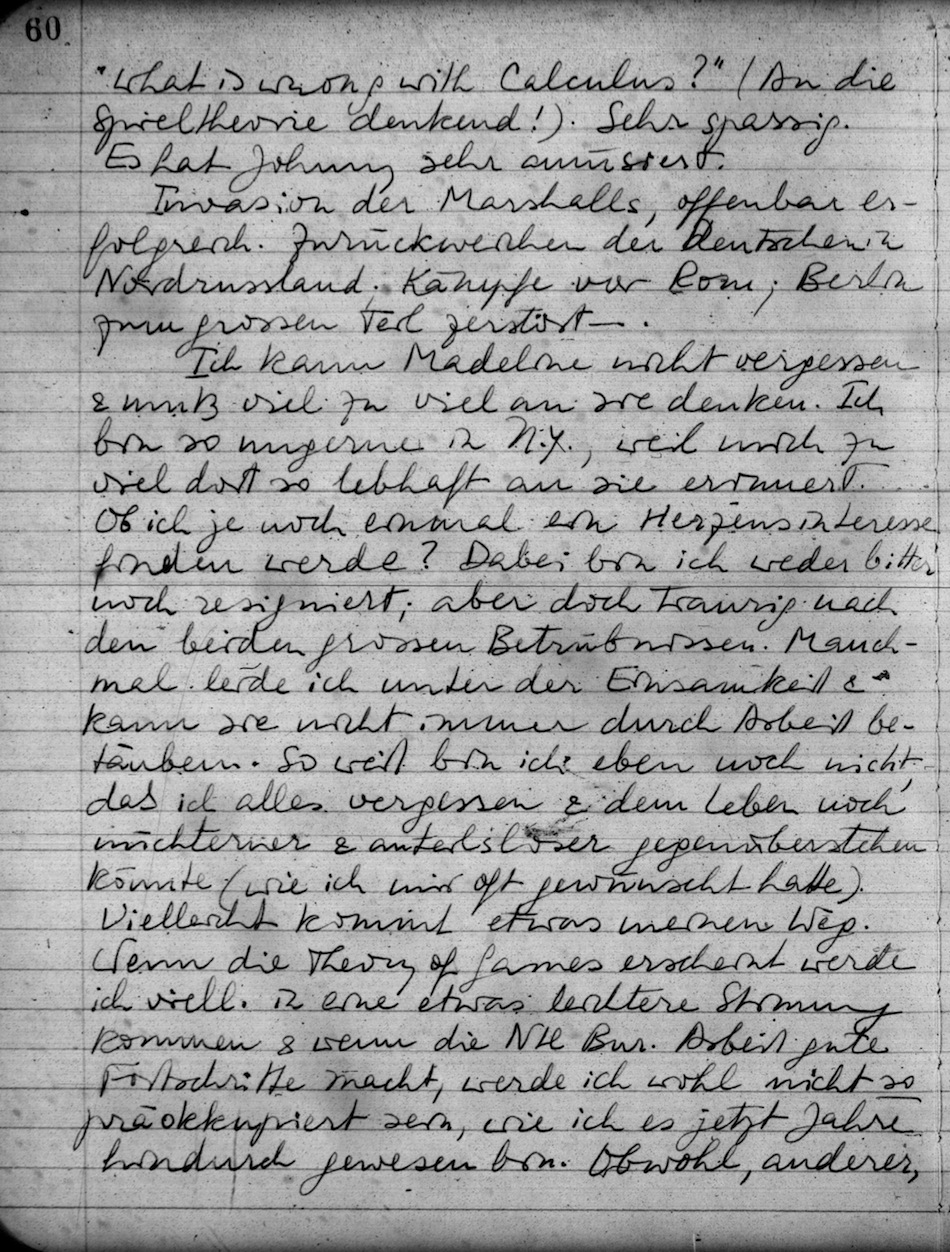 60
"What is wrong with Calculus?" (An die
Spieltheorie denkend!). Sehr spassig.
Es hat Johnny sehr amüsiert.
Invasion der Marshalls, offenbar er-
folgreich. Zurückweichen der Deutschen in
Nordrussland; Kämpfe vor Rom; Berlin
zum grossen Teil zerstört—.
Ich kann Madeline nicht vergessen
& muß viel zu viel an sie denken. Ich
bin so ungerne in N.Y., weil mich zu
viel dort so lebhaft an sie erinnert. ...
Ob ich je noch einmal ein Herzensinteresse
finden werde? Dabei bin ich weder bitter
noch resigniert; aber doch traurig nach
den beiden grossen Betrübnissen. Manch-
mal leide ich unter der Einsamkeit &
kann sie nicht immer durch Arbeit be-
täuben. So weit bin ich eben noch nicht,
daß ich alles vergessen & dem Leben noch
nüchterner & anteilsloser gegenüberstehen
könnte (wie ich mir oft gewünscht hatte).
Vielleicht kommt etwas meinen Weg.
Wenn die Theory of Games erscheint werde
ich viell. in eine etwas leichtere Stimmung
kommen & wenn die Bur. Arbeit gute
Fortschritte macht, werde ich wohl nicht so
präokkupiert sein, wie ich es jetzt Jahre
hindurch gewesen bin. Obwohl, anderer,